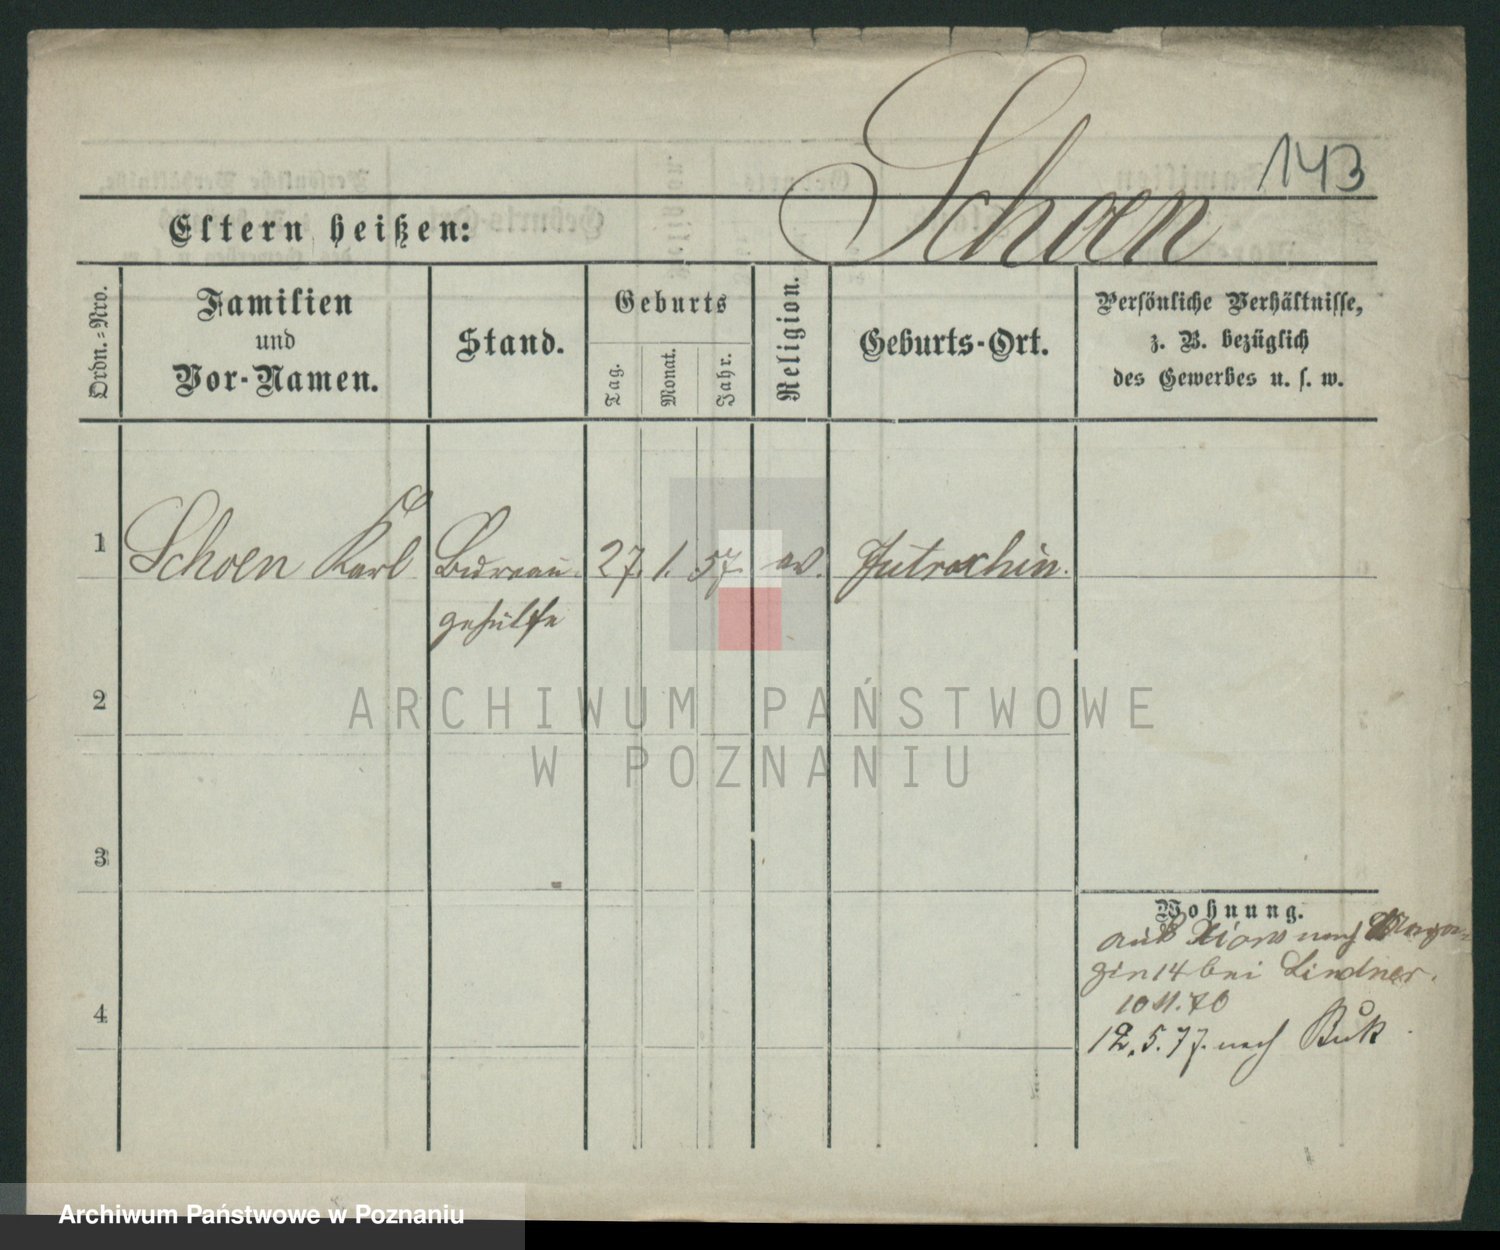 143
Schoen
Eltern heißen:
Ordn.-Nro.
Familien
und
Vor-Namen.
Stand.
Geburts
Tag.
Monat.
Jahr.
Religion.
Geburts-Ort.
Persönliche Verhältnisse,
z. B. bezüglich
des Gewerbes u. s. w.
1 Schoen Karl Bureau- 27. 1. 57. ev. Jutroschin.
gehülfe
2
ARCHIWUM PAŃSTWOWE
W POZNANIU
3
Wohnung.
aus Xions nach Maga-
zin 14 bei Lindner.
4
10 11. 76
12. 5. 77. nach Buk
Archiwum Państwowe w Poznaniu